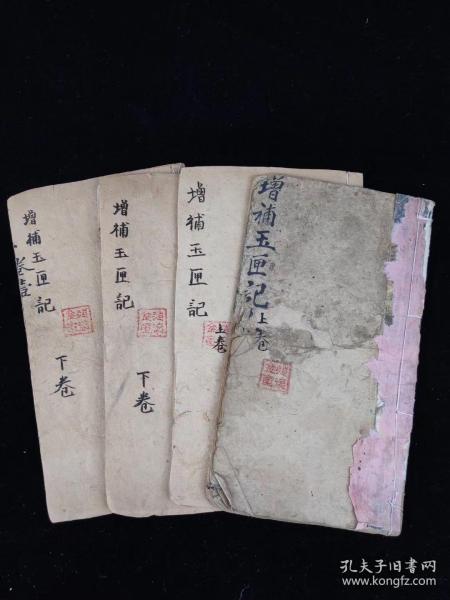 增補玉匣記
上卷
增補玉匣記
上卷
增補玉匣記
下卷
增補玉匣記
下卷
孔夫子旧书网
www.kongfz.com